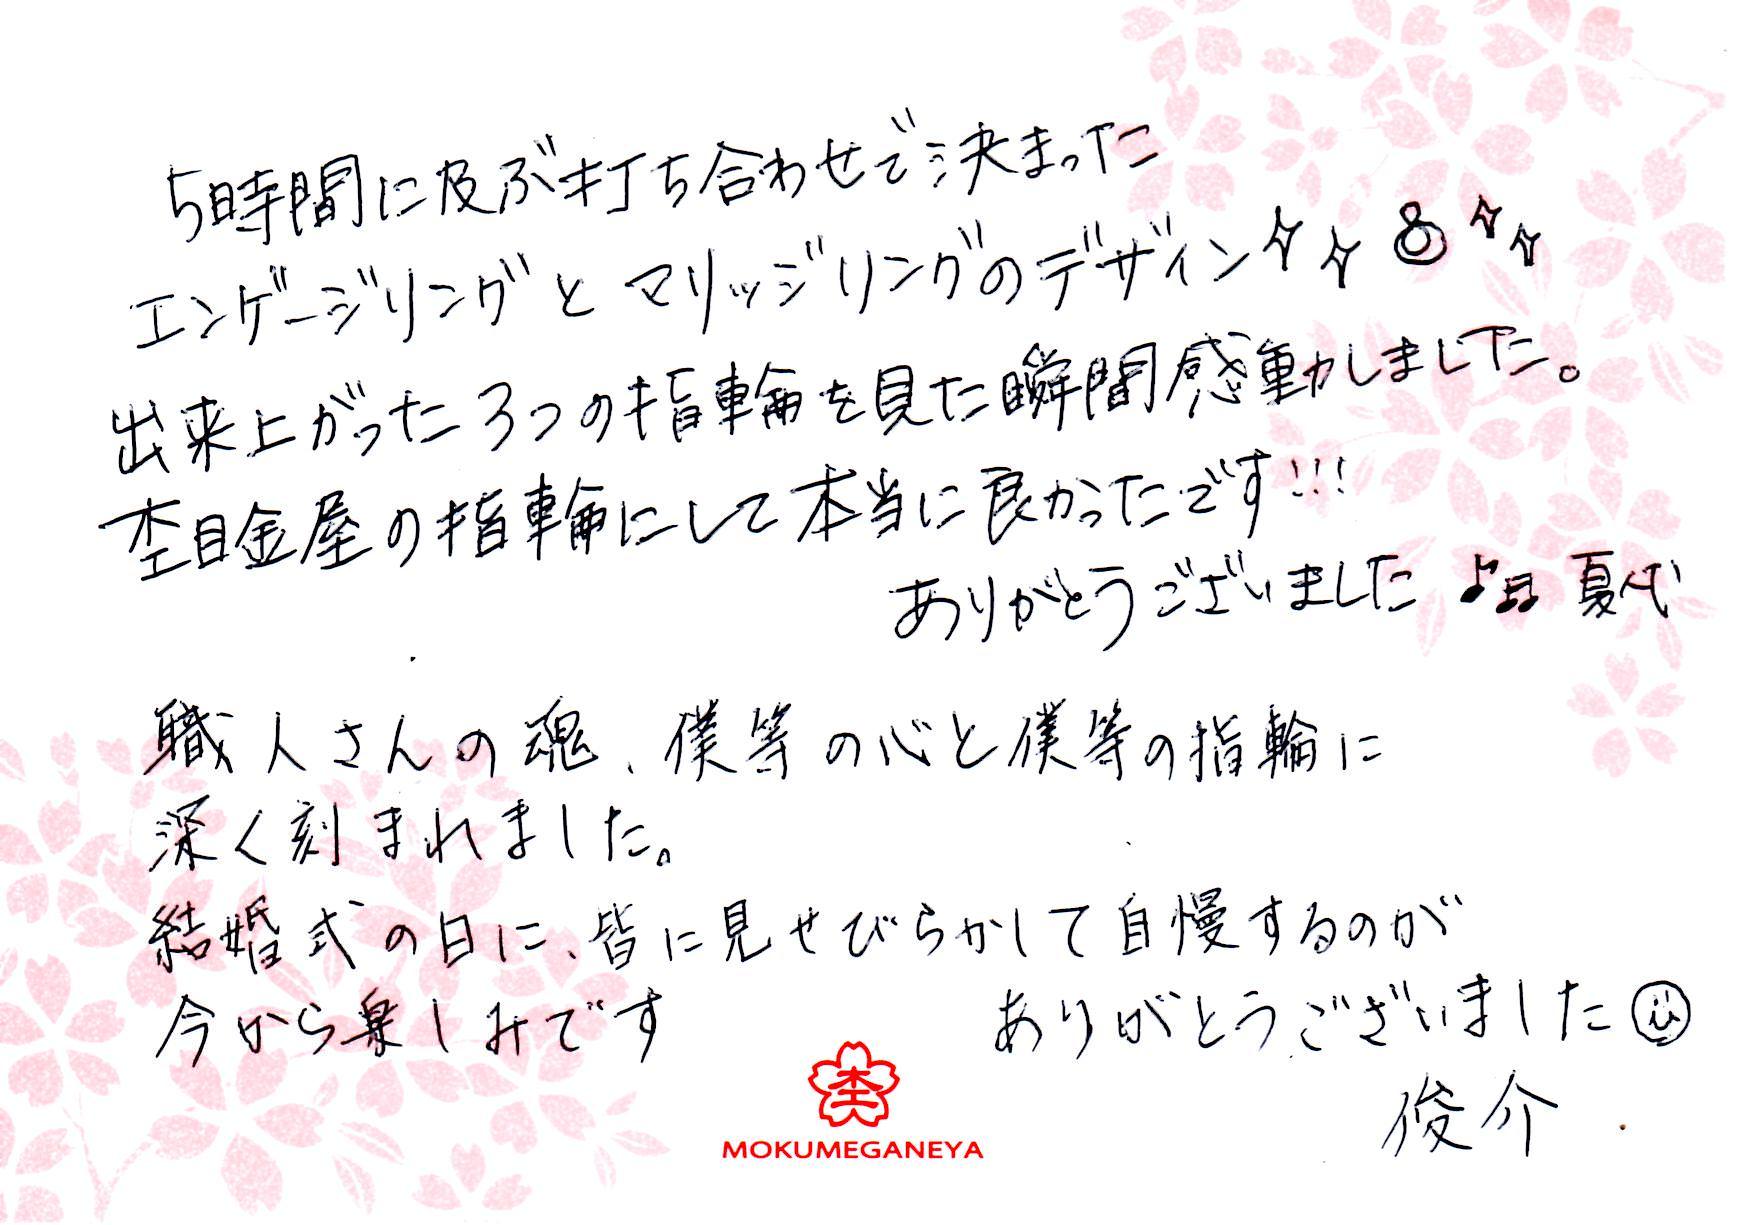 5時間に及ぶ打ち合わせで決まった
エンゲージリングとマリッジリングのデザイン
出来上がった3つの指輪を見た瞬間感動しました。
杢目金屋の指輪にして本当に良かったです!!!
ありがとうございました♪♬ 夏代
職人さんの魂、僕等の心と僕等の指輪に
深く刻まれました。
結婚式の日に、皆に見せびらかして自慢するのが
今から楽しみです
ありがとうございました
俊介
杢
MOKUMEGANEYA